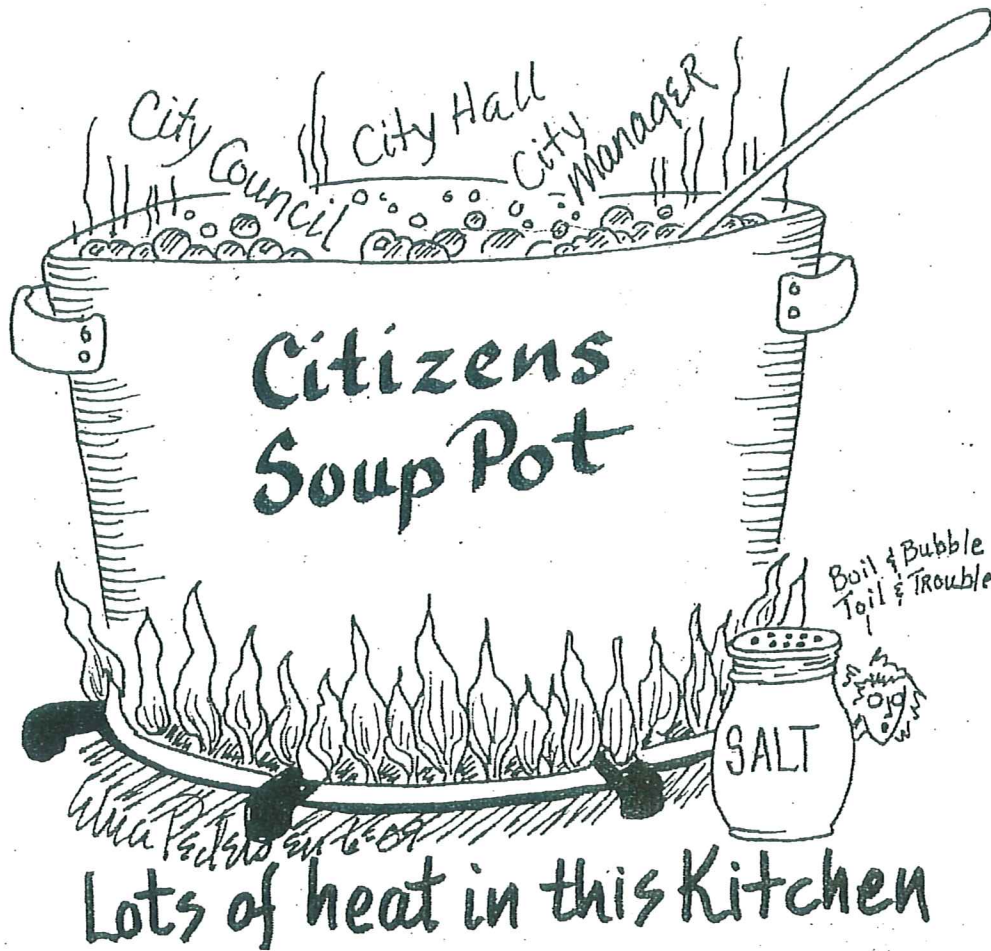 City
Council
City Hall
City
Manager
Citizens
Soup Pot
Boil & Bubble
Toil & Trouble
SALT
Lots of heat in this Kitchen